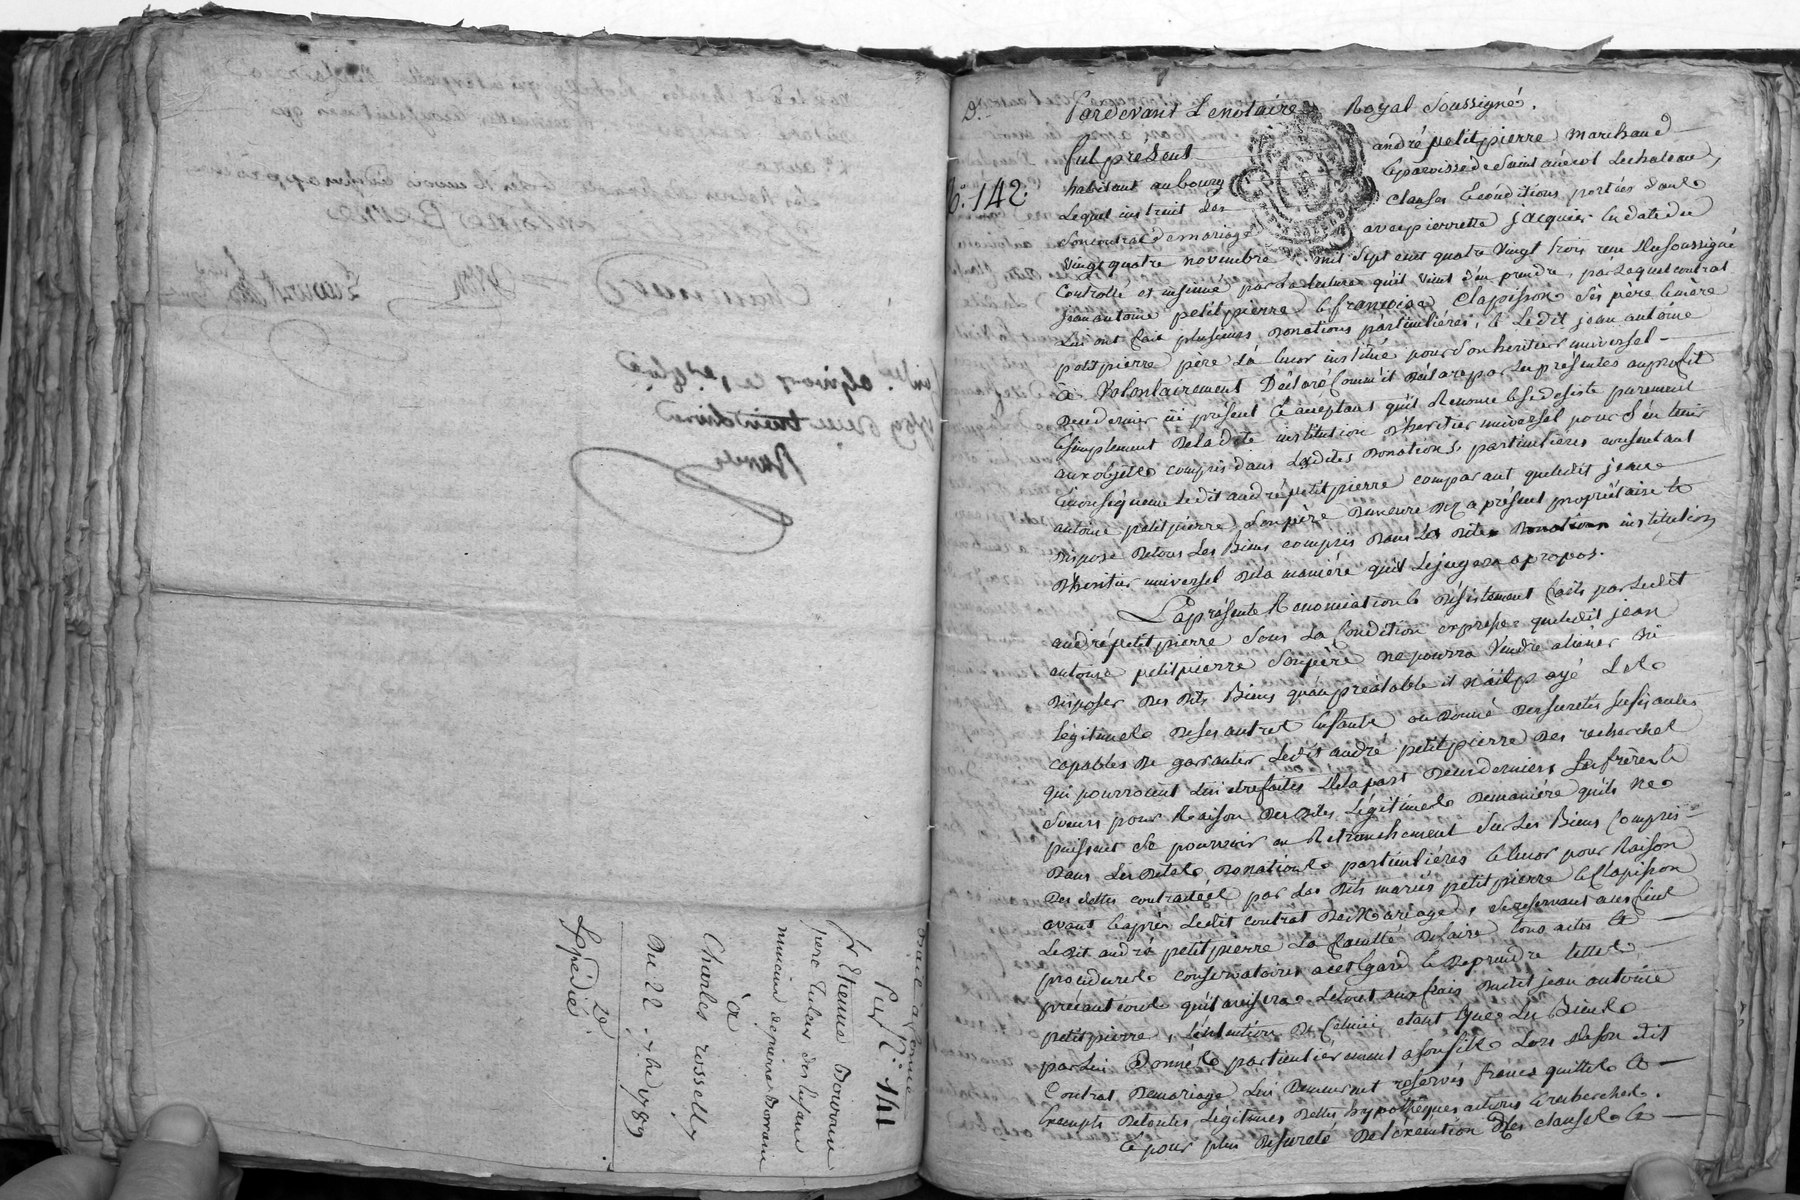 N.° 141
Sr Etienne Bourrin
pere Tuteur des enfans
mineurs de pierrette Dorraine
à
Charles rosselly
Du 22 7bre 1789
Expédié
D.
N.° 142.
Pardevant Le notaire Royal Soussigné.
fut présent andré petitpierre marchand
habitant au bourg et paroisse de Saint
Lequel instruit des clauses & conditions portées dans
Son contrat de mariage avec pierrette jacquier en date du
vingt quatre novembre mil sept cent quatre vingt trois reçu du soussigné
Controllé et insinué par la lecture qu'il vient d'en prendre, par lequel contrat
jean antoine petitpierre & françoise Clapisson Ses père & mère
Lui ont fait plusieurs donations particulières, & Ledit jean antoine
petitpierre père L'a encor institué pour Son heritier universel
à Volontairement Déclaré Comme il déclare par Les présentes au profit
De ce dernier ici présent & acceptant qu'il Renonce & se désiste purement
& simplement De la dite institution D'heritier universel pour S'en tenir
aux objets compris dans Lesdites donations particulières consentant
En conséquence Ledit andré petitpierre comparant que Ledit jean
antoine petitpierre Son père Demeure Dez a présent propriétaire &
dispose De tous Les Biens compris Dans La dite institution
D'heritier universel De la manière qu'il Le jugera apropos.
La présente Renonciation & désistement faits par Ledit
andré petitpierre Sous La Condition expresse que Ledit jean
antoine petitpierre Son père ne pourra Vendre aliéner ni
disposer Des dits Biens qu'au préalable il n'ait payé Les
Légitimes De Ses autres Enfants ou Donné Des Suretés Suffisantes
capables De garantir Ledit andré petitpierre Des recherches
qui pourroient Lui etre faites De la part De ces derniers Ses frères &
Sœurs pour Raison Des dites Légitimes De manière qu'ils ne
puissent Se pourvoir en Retranchement Sur Les Biens Compris
Dans Les dites Donations particulières & encor pour Raison
Des dettes contractées par Les dits mariés petitpierre & Clapisson
avant & après Ledit contrat De Mariage, Se reservant a cet effet
Ledit andré petitpierre La faculté De faire tous actes &
procedures conservatoires a cet égard & De prendre telles
précautions qu'il avisera Le tout aux frais Dudit jean antoine
petitpierre, L'intention De Celui ci etant que Les Biens
par Lui Donnés particulièrement a Son fils Lors De Son dit
Contrat De mariage Lui Demeurent reservés francs quittes &
Exempts De toutes Légitimes Dettes hypothèques actions & recherches.
& pour plus De Sureté De L'exécution Des clauses &